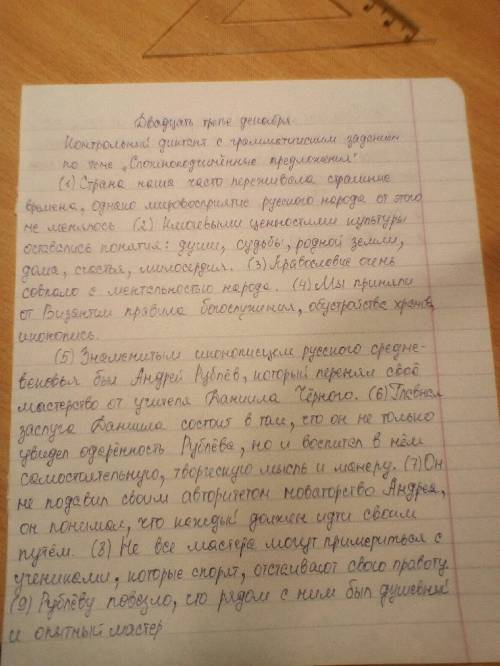 Двадцать третье декабря
Контрольный диктант с грамматическим заданием
по теме „Сложноподчинённые предложения"
(1) Страна наша часто переживала страшные
времена, однако мировосприятие русского народа от этого
не менялось. (2) Ключевыми ценностями культуры
оставались понятия: души, судьбы, родной земли,
дома, счастья, милосердия. (3) Православие очень
совпало с ментальностью народа. (4) Мы приняли
от Византии правила богослужения, обустройства храмов,
иконопись.
(5) Знаменитым иконописцем русского средне-
вековья был Андрей Рублёв, который перенял своё
мастерство от учителя Даниила Чёрного. (6) Главная
заслуга Даниила состоит в том, что он не только
увидел одарённость Рублёва, но и воспитал в нём
самостоятельную, творческую мысль и манеру. (7) Он
не подавил своим авторитетом новаторство Андрея,
он понимал, что каждый должен идти своим
путём. (8) Не все мастера могут примериться с
учениками, которые спорят, отстаивают свою правоту.
(9) Рублёву повезло, что рядом с ним был душевный
и опытный мастер